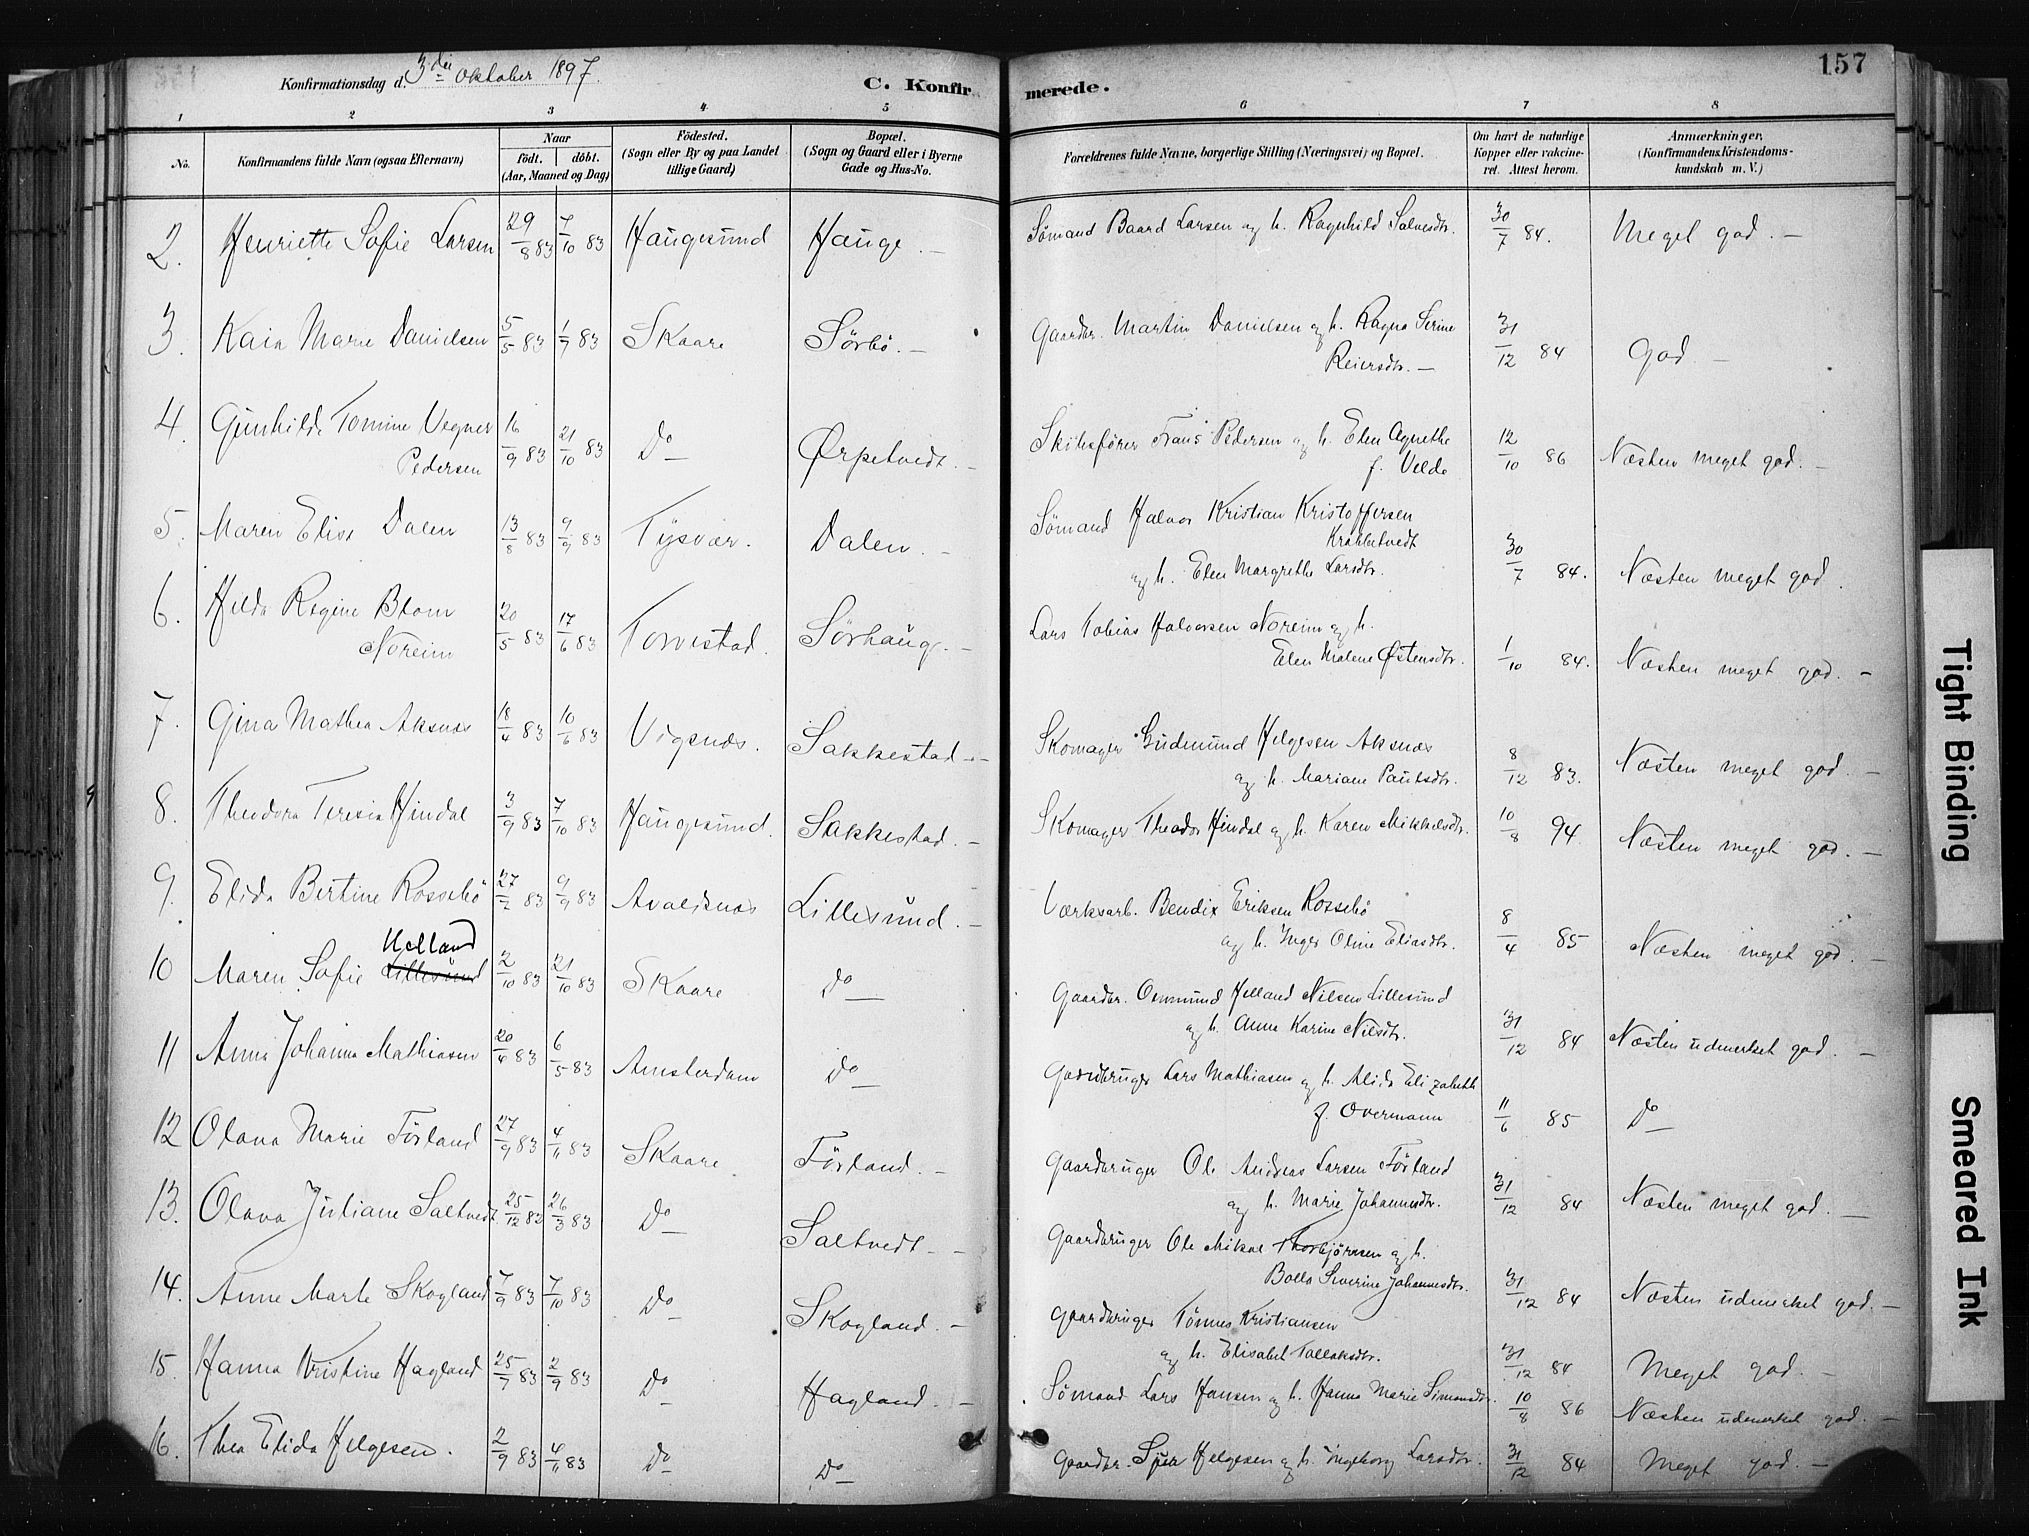 157
Konfirmationsdag d. 3die Oktober 1897.
C. Konfirmerede.
1 2 3 4 5 6 7 8
No.
Konfirmandens fulde Navn (ogsaa Efternavn)
Naar
födt. döbt.
(Aar, Maaned og Dag)
Födested.
(Sogn eller By og paa Landet
tillige Gaard)
Bopæl.
(Sogn og Gaard eller i Byerne
Gade og Hus-No.
Forældrenes fulde Navne, borgerlige Stilling (Næringsvei) og Bopæl.
Om havt de naturlige
Kopper eller vakcine-
ret. Attest herom.
Anmærkninger,
(Konfirmandens Kristendoms-
kundskab m. V.)
2. Henriette Sofie Larsen 29/8 83 7/10 83 Haugesund Hauge. — Sømand Baard Larsen og h. Ragnhild Salvesdtr. 30/7 84. Meget god. —
3. Kaia Marie Danielsen 5/5 83 1/7 83 Skaare Sörbö. — Gaardbr. Martin Danielsen og h. Ragna Serine
Reiersdtr. — 31/12 84 God —
4. Gunhilde Tomine Vegner
Pedersen 16/9 83 21/10 83 Do Ørpetvedt. — Skibsfører Frans Pedersen og h. Elen Agnethe
f. Velde 12/10 86 Næsten meget god. —
5. Maren Elise Dalen 13/8 83 9/9 83 Tysvær. Dalen. — Sømand Halvor Kristian Kristoffersen
Krakketvedt
og h. Elen Margrethe Larsdtr. 30/7 84. Næsten meget god.
6. Hilda Regine Blom
Noreim 20/5 83 17/6 83 Torvestad. Sörhauge. — Lars Tobias Halvorsen Noreim og h.
Elen Malene Østensdtr. 1/10 84. Næsten meget god. —
7. Gina Mathea Aksnæs 18/4 83 10/6 83 Vigsnæs. Sakkestad. — Skomager Gudmund Helgesen Aksnæs
og h. Mariane Paulsdtr. 8/12 83. Næsten meget god. —
8. Theodora Teresia Hindal 3/9 83 7/10 83 Haugesund. Sakkestad. — Skomager Theodor Hindal og h. Karen Mikkelsdtr. 10/8 94. Næsten meget god. —
9. Elida Bertine Rossebö 27/7 83 9/9 83 Avaldsnæs Lillesund. — Værksarb. Bendix Eriksen Rossebö
og h. Inger Oline Eliasdtr. 8/4 85 Næsten meget god. —
Helland
10 Maren Sofie Lillesund 2/10 83 21/10 83 Skaare Do Gaardbr. Osmund Helland Nilsen Lillesund
og h. Anne Karine Nilsdtr. 31/12 84 Næsten udmerket god. —
11 Anna Johanna Mathiasen 20/4 83 6/5 83 Amsterdam Do Gaardbruger Lars Mathiasen og h. Alida Elizabeth
f. Overmann 11/6 85 Do
12 Olava Marie Förland 27/9 83 4/11 83 Skaare. Förland. — Gaardbruger Ole Andreas Larsen Förland
og h. Marie Johannesdtr. 31/12 84 Næsten meget god. —
13. Olava Juliane Saltvedt 25/12 83 26/3 83 Do Saltvedt. — Gaardbruger Ole Mikal Thorbjörnsen og h.
Bolla Severine Johannesdtr. 31/12 84 Næsten udmerket god. —
14. Anne Marte Skogland 7/9 83 7/10 83 Do Skogland. — Gaardbruger Tönnes Kristiansen
og h. Elisabet Tollaksdtr. 31/12 84 Meget god. —
15. Hanna Kristine Hagland 25/7 83 2/9 83 Do Hagland. — Sømand Lars Hansen og h. Hanna Marie Simonsdtr. 10/8 86 Næsten udmerket god. —
16. Thea Elida Helgesen. 2/9 83 4/11 83 Do Do Gaardbr. Helgesen og h. Ingeborg Larsdtr. 31/12 84 Meget god. —
Tight Binding
Smeared Ink